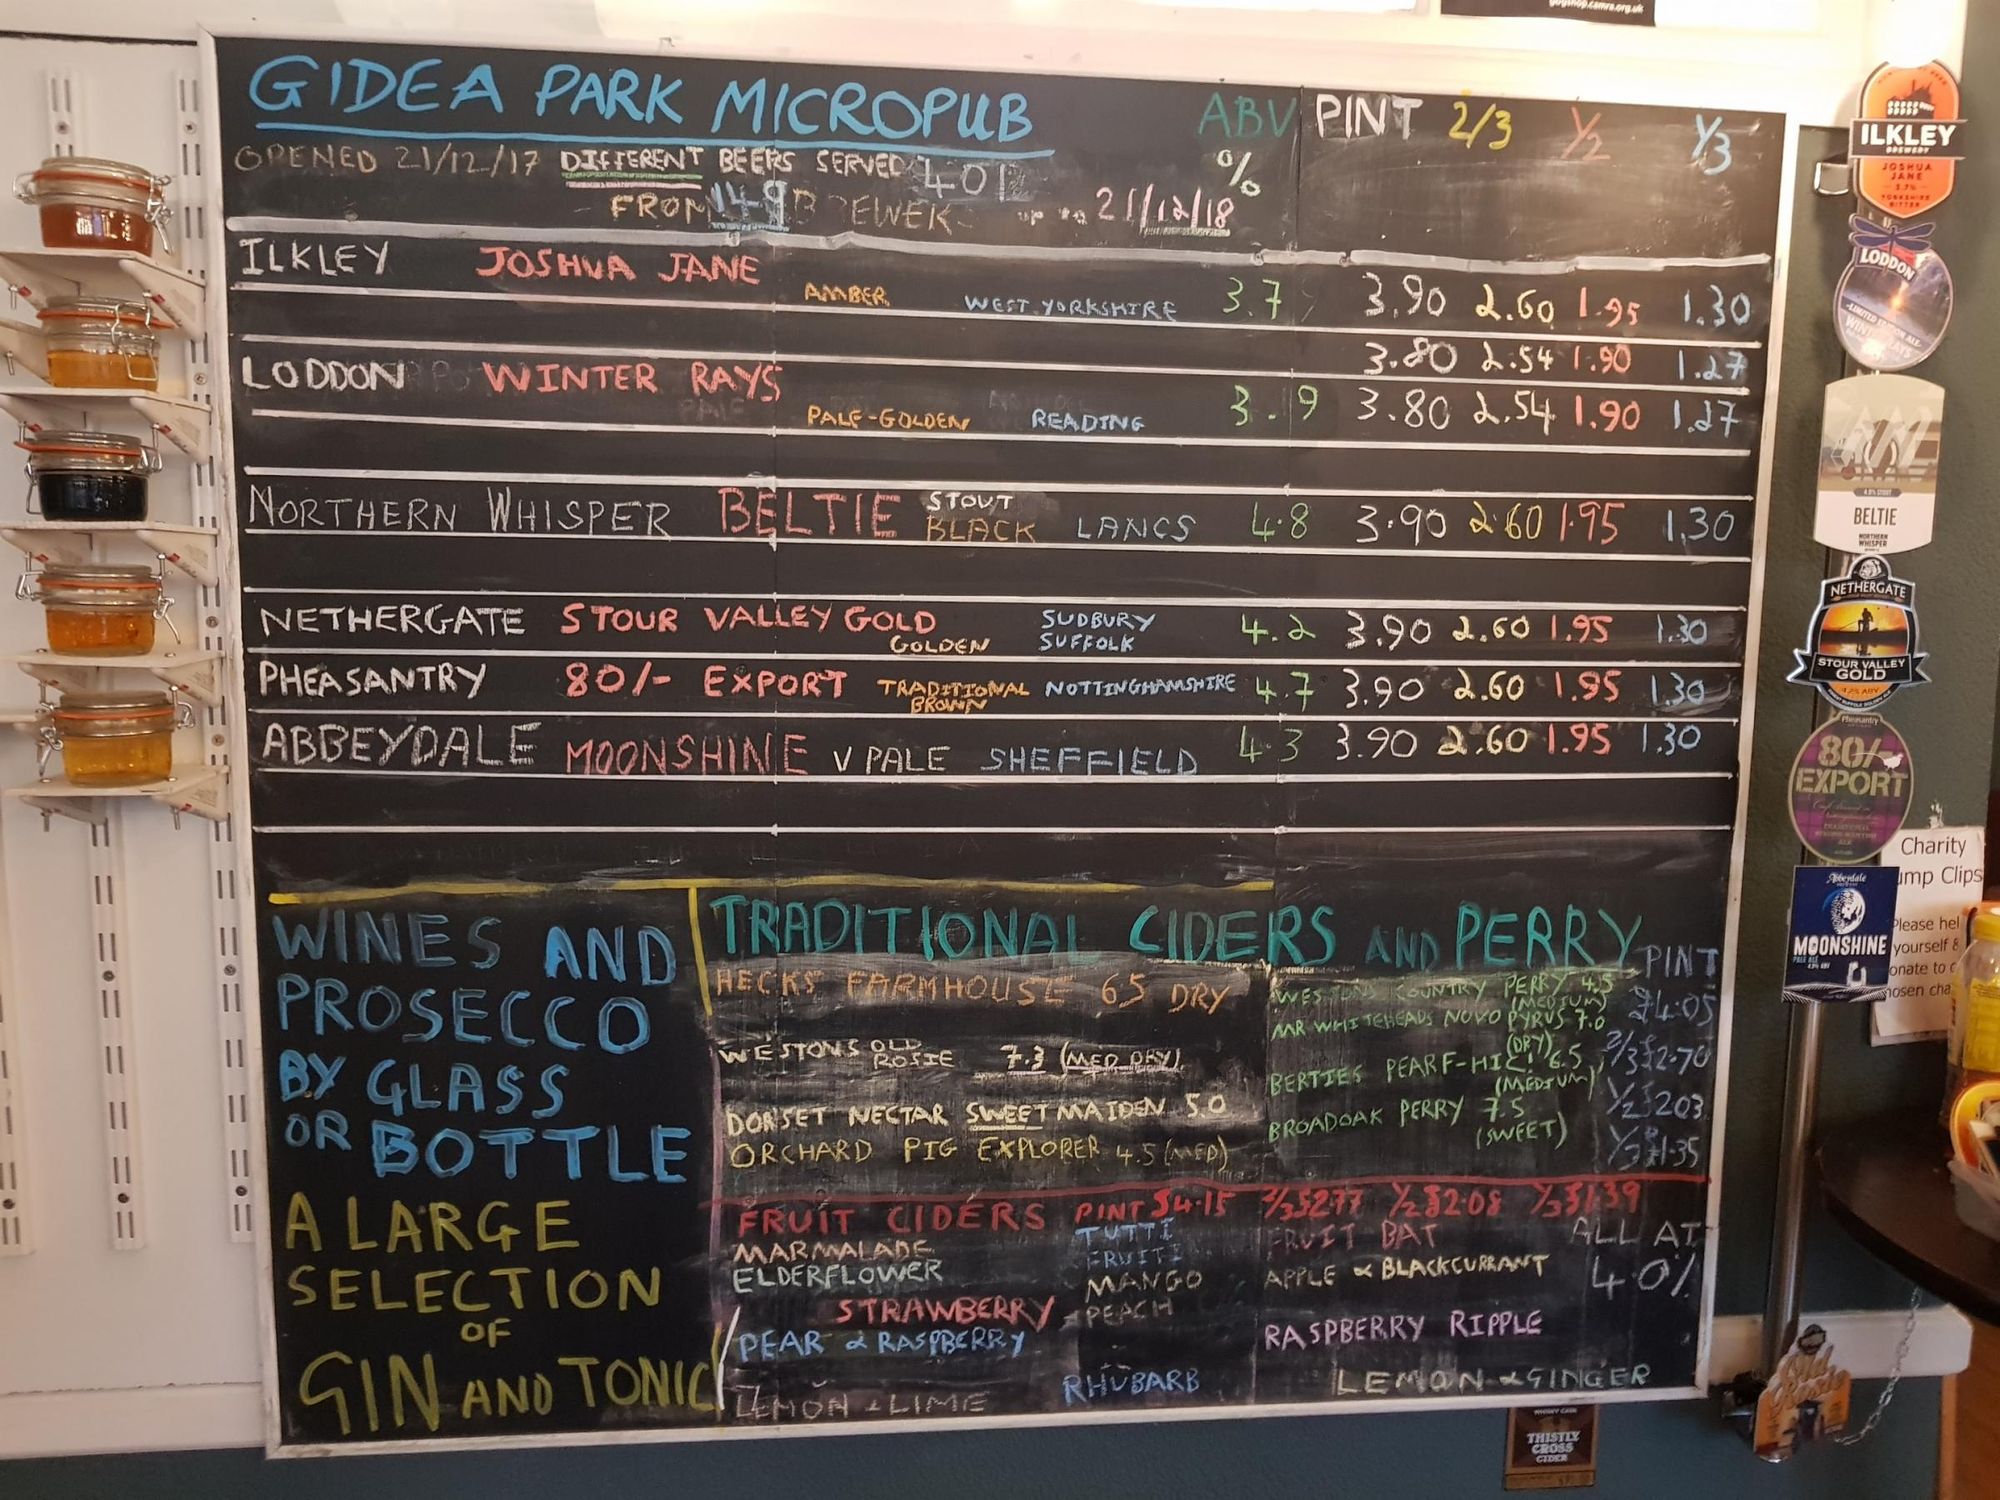 gbgshop.camra.org.uk
GIDEA PARK MICROPUB ABV PINT 2/3 1/2 1/3
OPENED 21/12/17 DIFFERENT BEERS SERVED 401 %
FROM 149 up to 21/12/18
ILKLEY JOSHUA JANE
AMBER WEST YORKSHIRE 3.7 3.90 2.60 1.95 1.30
3.80 2.54 1.90 1.27
LODDON WINTER RAYS
PALE-GOLDEN READING 3.9 3.80 2.54 1.90 1.27
NORTHERN WHISPER BELTIE STOUT
BLACK LANCS 4.8 3.90 2.60 1.95 1.30
NETHERGATE STOUR VALLEY GOLD SUDBURY 4.2 3.90 2.60 1.95 1.30
GOLDEN SUFFOLK
PHEASANTRY 80/- EXPORT TRADITIONAL NOTTINGHAMSHIRE 4.7 3.90 2.60 1.95 1.30
BROWN
ABBEYDALE MOONSHINE V PALE SHEFFIELD 4.3 3.90 2.60 1.95 1.30
WINES AND
PROSECCO
BY GLASS
OR BOTTLE
A LARGE
SELECTION
OF
GIN AND TONIC
TRADITIONAL CIDERS AND PERRY
HECKS FARMHOUSE 6.5 DRY
WESTONS OLD
ROSIE 7.3 (MED DRY)
DORSET NECTAR SWEET MAIDEN 5.0
ORCHARD PIG EXPLORER 4.5 (MED)
WESTONS COUNTRY PERRY 4.5
(MEDIUM)
MR WHITEHEADS NOVO PYRUS 7.0
(DRY)
BERTIES PEARF-HIC! 6.5
(MEDIUM)
BROADOAK PERRY 7.5
(SWEET)
PINT
£4.05
2/3 £2.70
1/2 £2.03
1/3 £1.35
FRUIT CIDERS PINT £4.15 2/3 £2.77 1/2 £2.08 1/3 £1.39
MARMALADE
ELDERFLOWER
STRAWBERRY
PEAR & RASPBERRY
LEMON & LIME
TUTTI
FRUITI
MANGO
PEACH
RHUBARB
FRUIT BAT
APPLE & BLACKCURRANT
RASPBERRY RIPPLE
LEMON & GINGER
ALL AT
4.0%
ILKLEY
BREWERY
JOSHUA
JANE
3.7%
YORKSHIRE
BITTER
LODDON
LIMITED EDITION ALE
WINTER RAYS
4.8% STOUT
BELTIE
NORTHERN
WHISPER
NETHERGATE
STOUR VALLEY
GOLD
4.2% ABV
Pheasantry
80/-
EXPORT
Abbeydale
MOONSHINE
PALE ALE
4.3% ABV
Charity
ump Clips
Please hel
yourself &
onate to
osen cha
Old
Rosie
WHISKY CASK
THISTLY
CROSS
CIDER